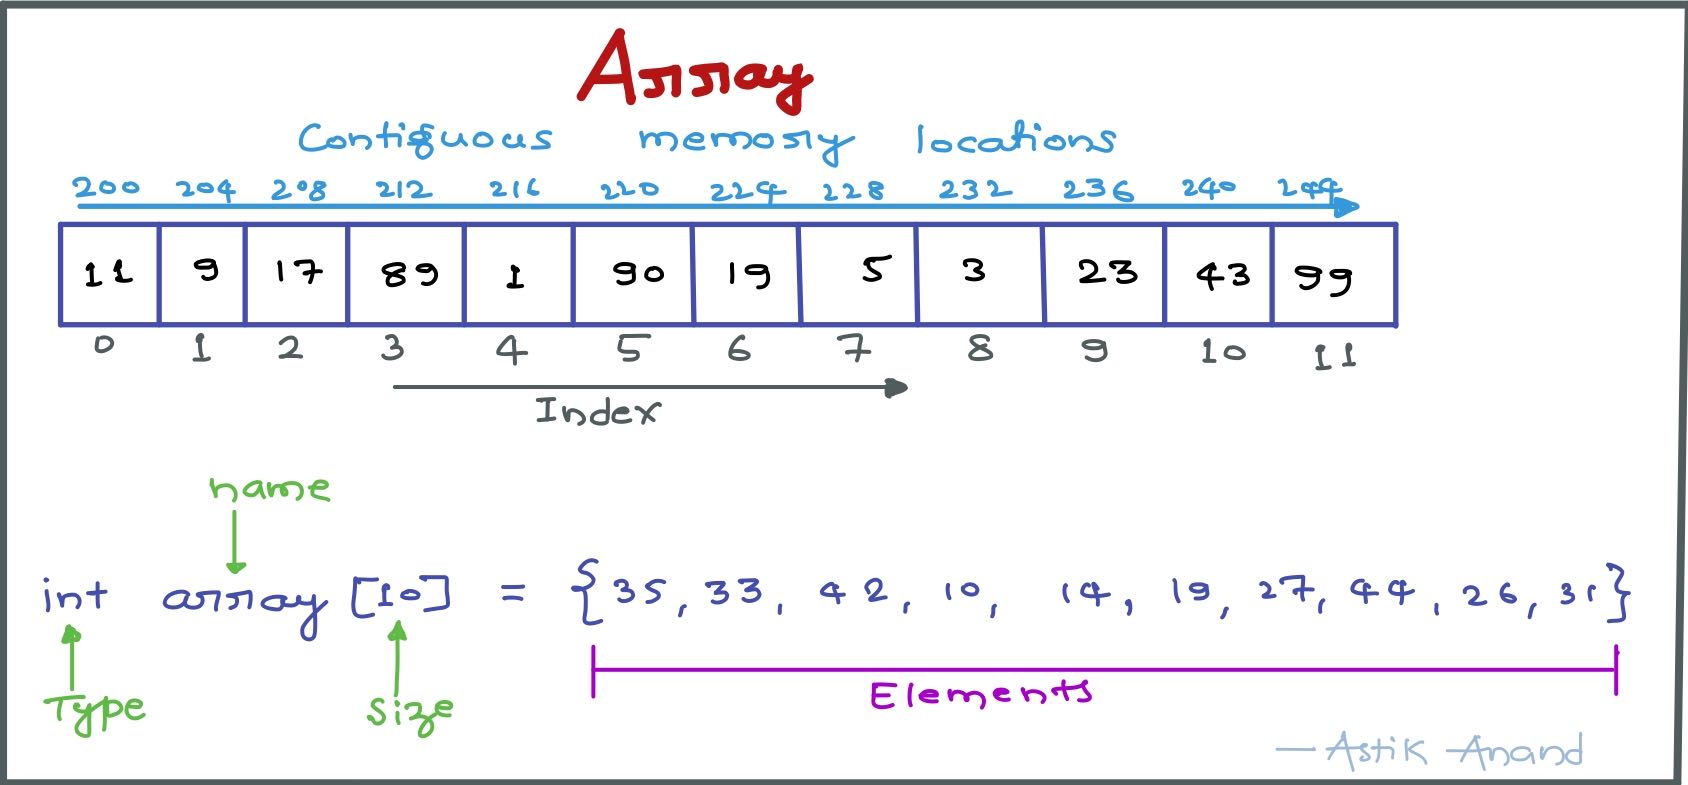 Array
Contiguous memory locations
200 204 208 212 216 220 224 228 232 236 240 244
11 9 17 89 1 90 19 5 3 23 43 99
0 1 2 3 4 5 6 7 8 9 10 11
Index
name
int array [10] = {35, 33, 42, 10, 14, 19, 27, 44, 26, 31}
Type size Elements
— Astik Anand